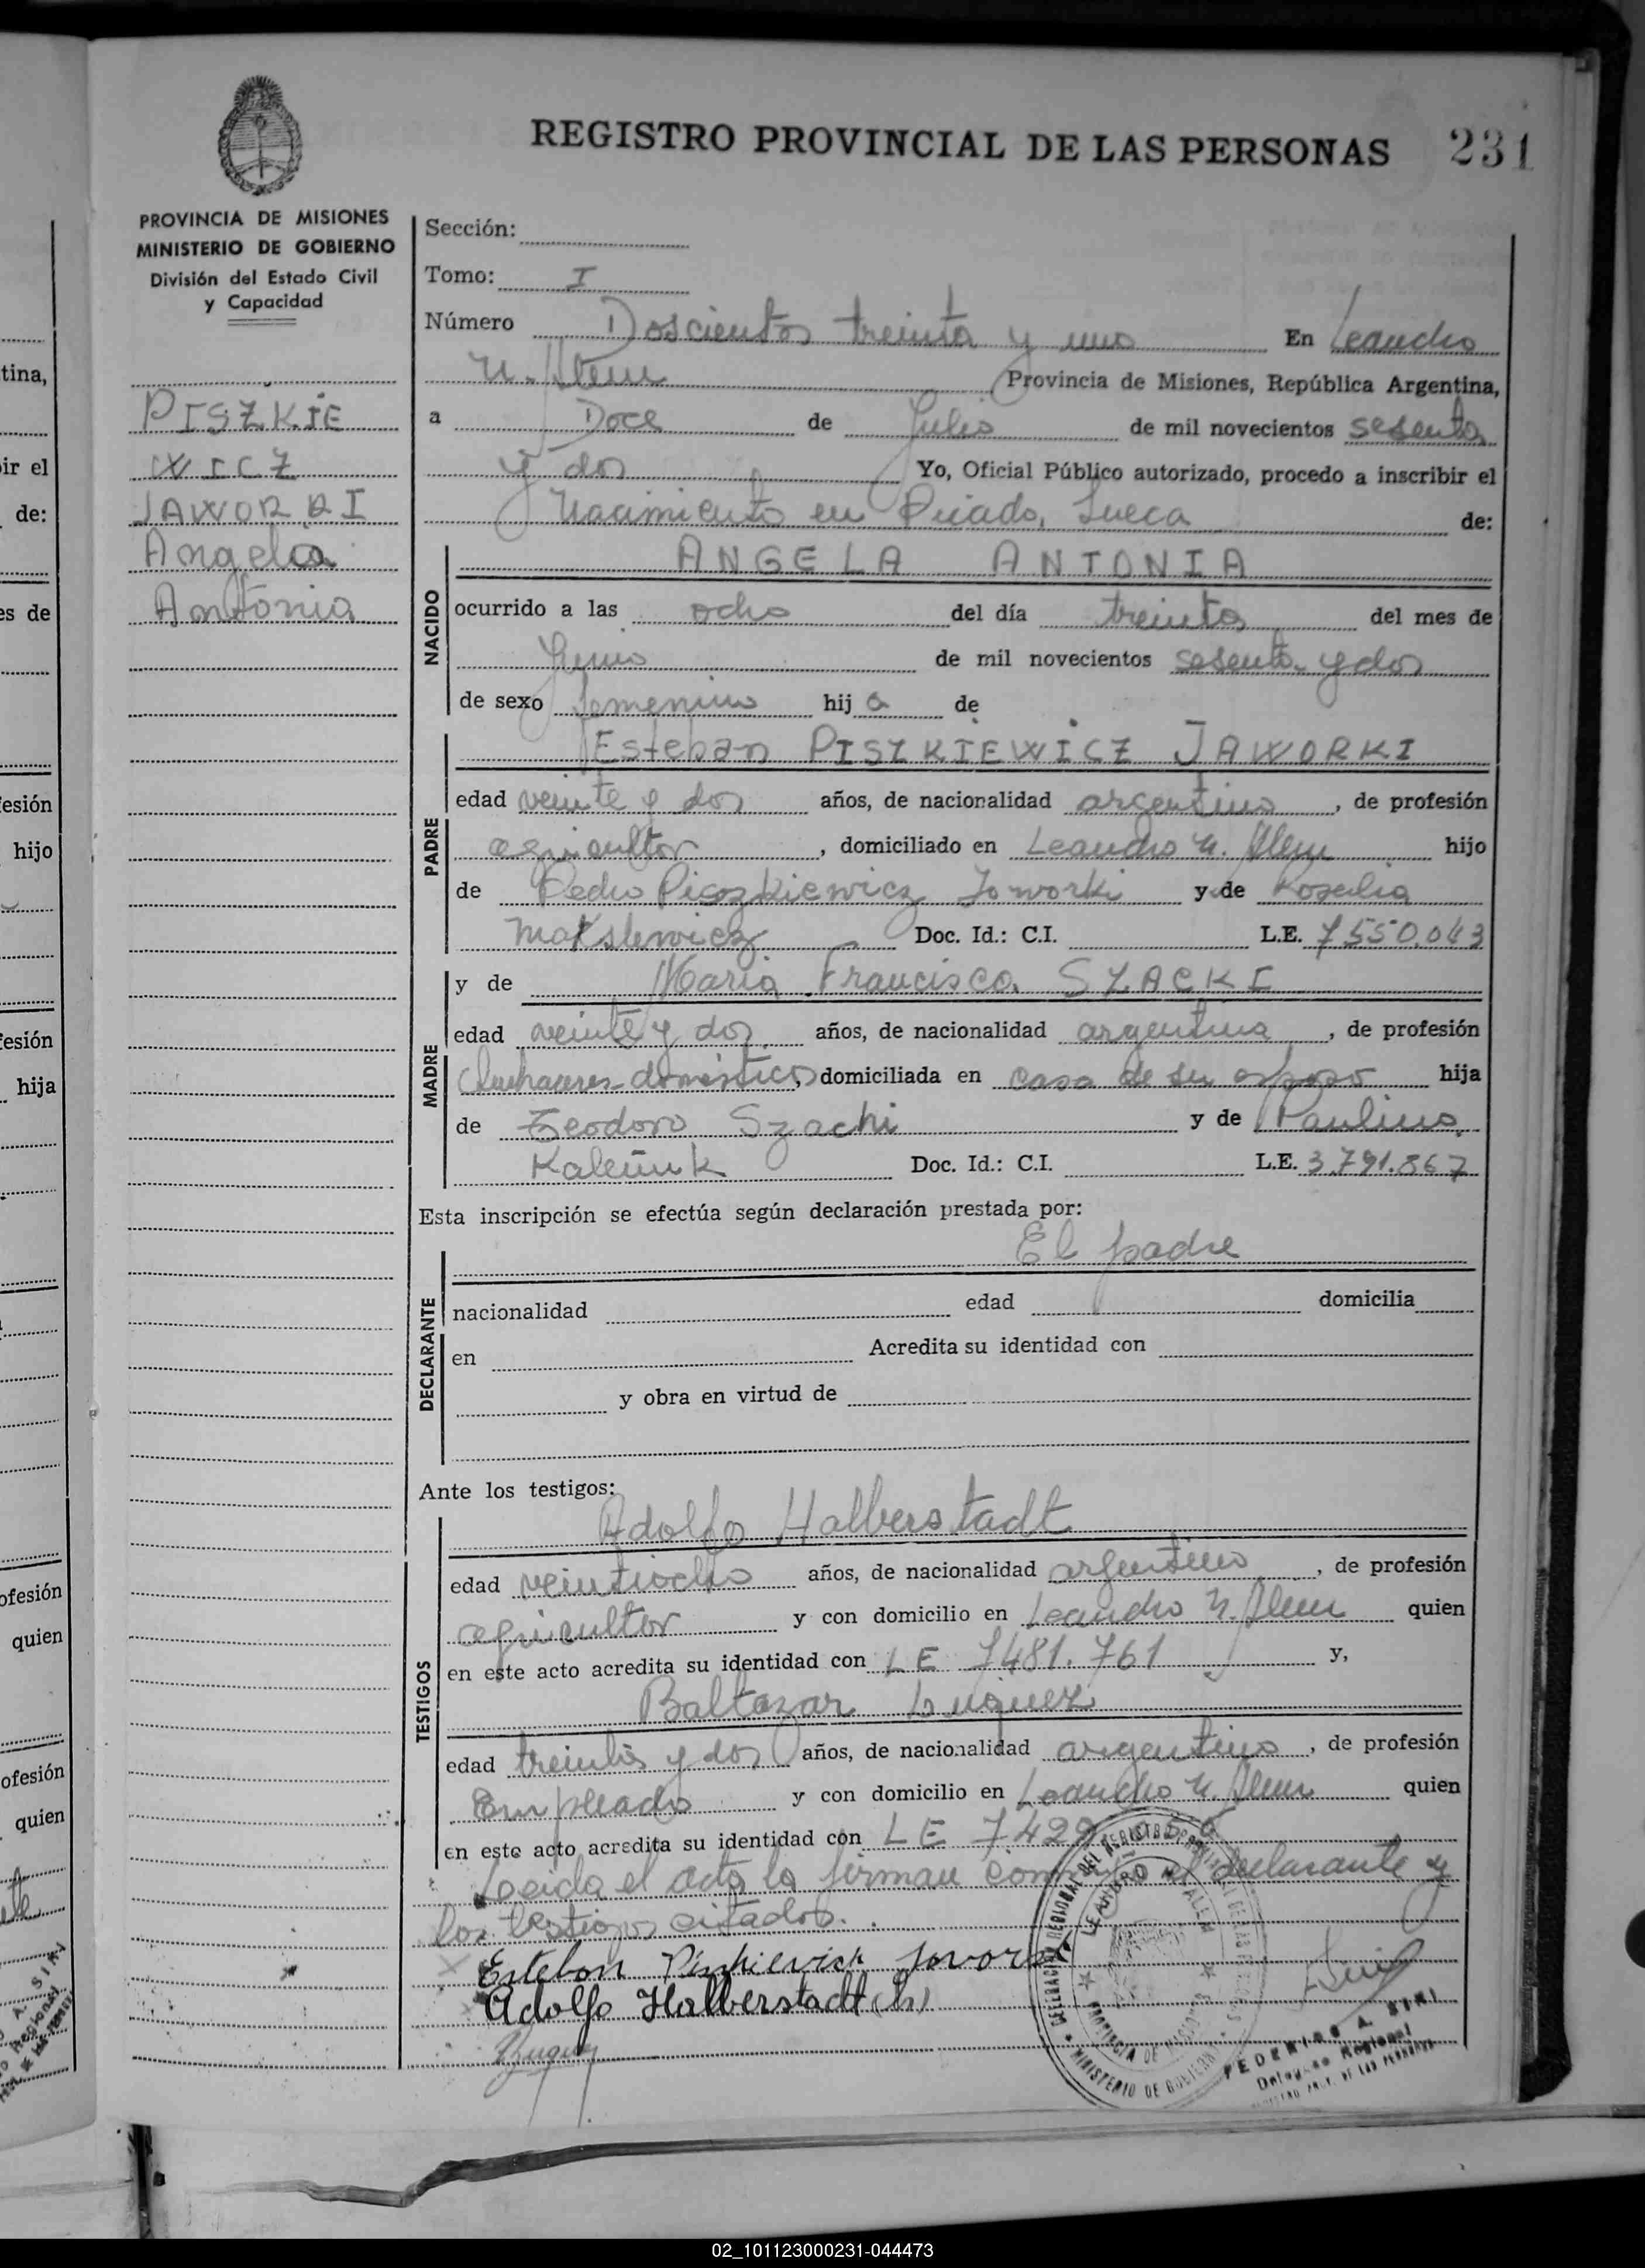 REGISTRO PROVINCIAL DE LAS PERSONAS 231
PROVINCIA DE MISIONES
MINISTERIO DE GOBIERNO
División del Estado Civil
y Capacidad
PISZKIE
WICZ
JAWORKI
Angela
Antonia
Sección:
Tomo: I
Número Doscientos treinta y uno En Leandro
N. Alem Provincia de Misiones, República Argentina,
a Doce de Julio de mil novecientos sesenta
y dos Yo, Oficial Público autorizado, procedo a inscribir el
Nacimiento en Picada Sueca de:
NACIDO
ANGELA ANTONIA
ocurrido a las ocho del día treinta del mes de
Junio de mil novecientos sesenta y dos
de sexo femenino hij a de
PADRE
Esteban PISZKIEWICZ JAWORKI
edad veinte y dos años, de nacionalidad argentino, de profesión
agricultor, domiciliado en Leandro N. Alem hijo
de Pedro Piszkiewicz Jaworki y de Rosalia
Makslewicz Doc. Id.: C.I. L.E. 7.550.043
MADRE
y de Maria Francisca SZACKI
edad veinte y dos años, de nacionalidad argentina, de profesión
Quehaceres domésticos, domiciliada en casa de su esposo hija
de Teodoro Szachi y de Paulina
Doc. Id.: C.I. L.E. 3.791.867
Esta inscripción se efectúa según declaración prestada por:
El padre
DECLARANTE
nacionalidad edad domicilia
en Acredita su identidad con
y obra en virtud de
Ante los testigos:
TESTIGOS
Adolfo Halberstadt
edad veintiocho años, de nacionalidad argentino, de profesión
agricultor y con domicilio en Leandro N. Alem quien
en este acto acredita su identidad con LE 7481.761 y,
Baltazar Luquez
edad treinta y dos años, de nacionalidad argentino, de profesión
Empleado y con domicilio en Leandro N. Alem quien
en este acto acredita su identidad con LE 7429
Leida el acta la firman conmigo el declarante y
los testigos citados.
Esteban
Adolfo Halberstadt (h)
LEANDRO N. ALEM
PROVINCIA DE MISIONES
MINISTERIO DE GOBIERNO
FEDERICO A. SIRI
Delegado Regional
tina,
ir el
de:
es de
esión
hijo
esión
hija
ofesión
quien
ofesión
quien
02_101123000231-044473